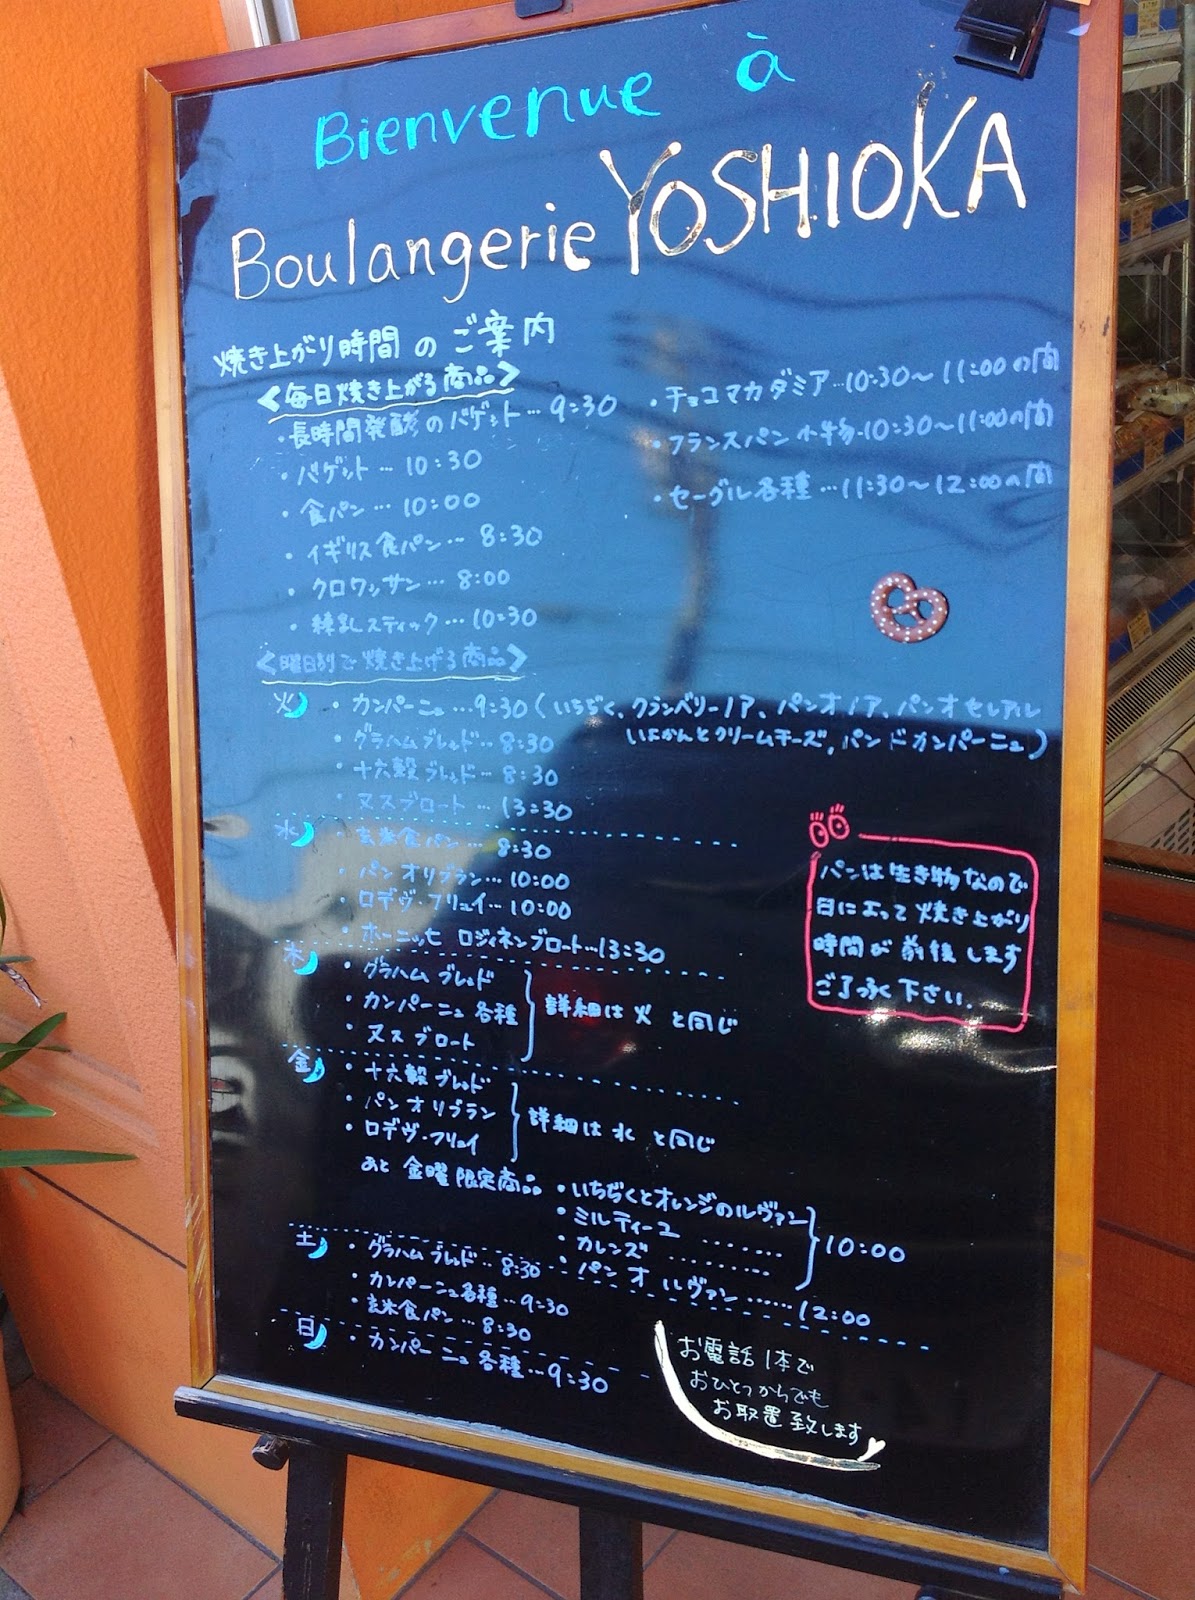 Bienvenue à
Boulangerie YOSHIOKA
焼き上がり時間のご案内
<毎日焼き上がる商品>
・長時間発酵のバゲット…9:30
・バゲット…10:30
・食パン…10:00
・イギリス食パン…8:30
・クロワッサン…8:00
・練乳スティック…10:30
・チョコマカダミア…10:30〜11:00の間
・フランスパン小物…10:30〜11:00の間
・セーグル各種…11:30〜12:00の間
<曜日別で焼き上げる商品>
火 ・カンパーニュ…9:30(いちぢく、クランベリーノア、パンオノア、パンオセレアル
いよかんとクリームチーズ、パンドカンパーニュ)
・グラハムブレッド…8:30
・十六穀ブレッド…8:30
・ヌスブロート…13:30
水 ・玄米食パン…8:30
・パンオリブラン…10:00
・ロデヴ・フリュイ…10:00
・ホーニッヒ ロジィネンブロート…13:30
木 ・グラハムブレッド
・カンパーニュ各種 詳細は火と同じ
・ヌスブロート
金 ・十六穀ブレッド
・パンオリブラン 詳細は水と同じ
・ロデヴ・フリュイ
あと金曜限定商品 ・いちぢくとオレンジのルヴァン
・ミルティーユ ……
・カレンズ …… 10:00
・パンオルヴァン……12:00
土 ・グラハムブレッド…8:30
・カンパーニュ各種…9:30
・玄米食パン…8:30
日 ・カンパーニュ各種…9:30
パンは生き物なので
日によって焼き上がり
時間が前後します
ご了承下さい.
お電話1本で
おひとつからでも
お取置致します